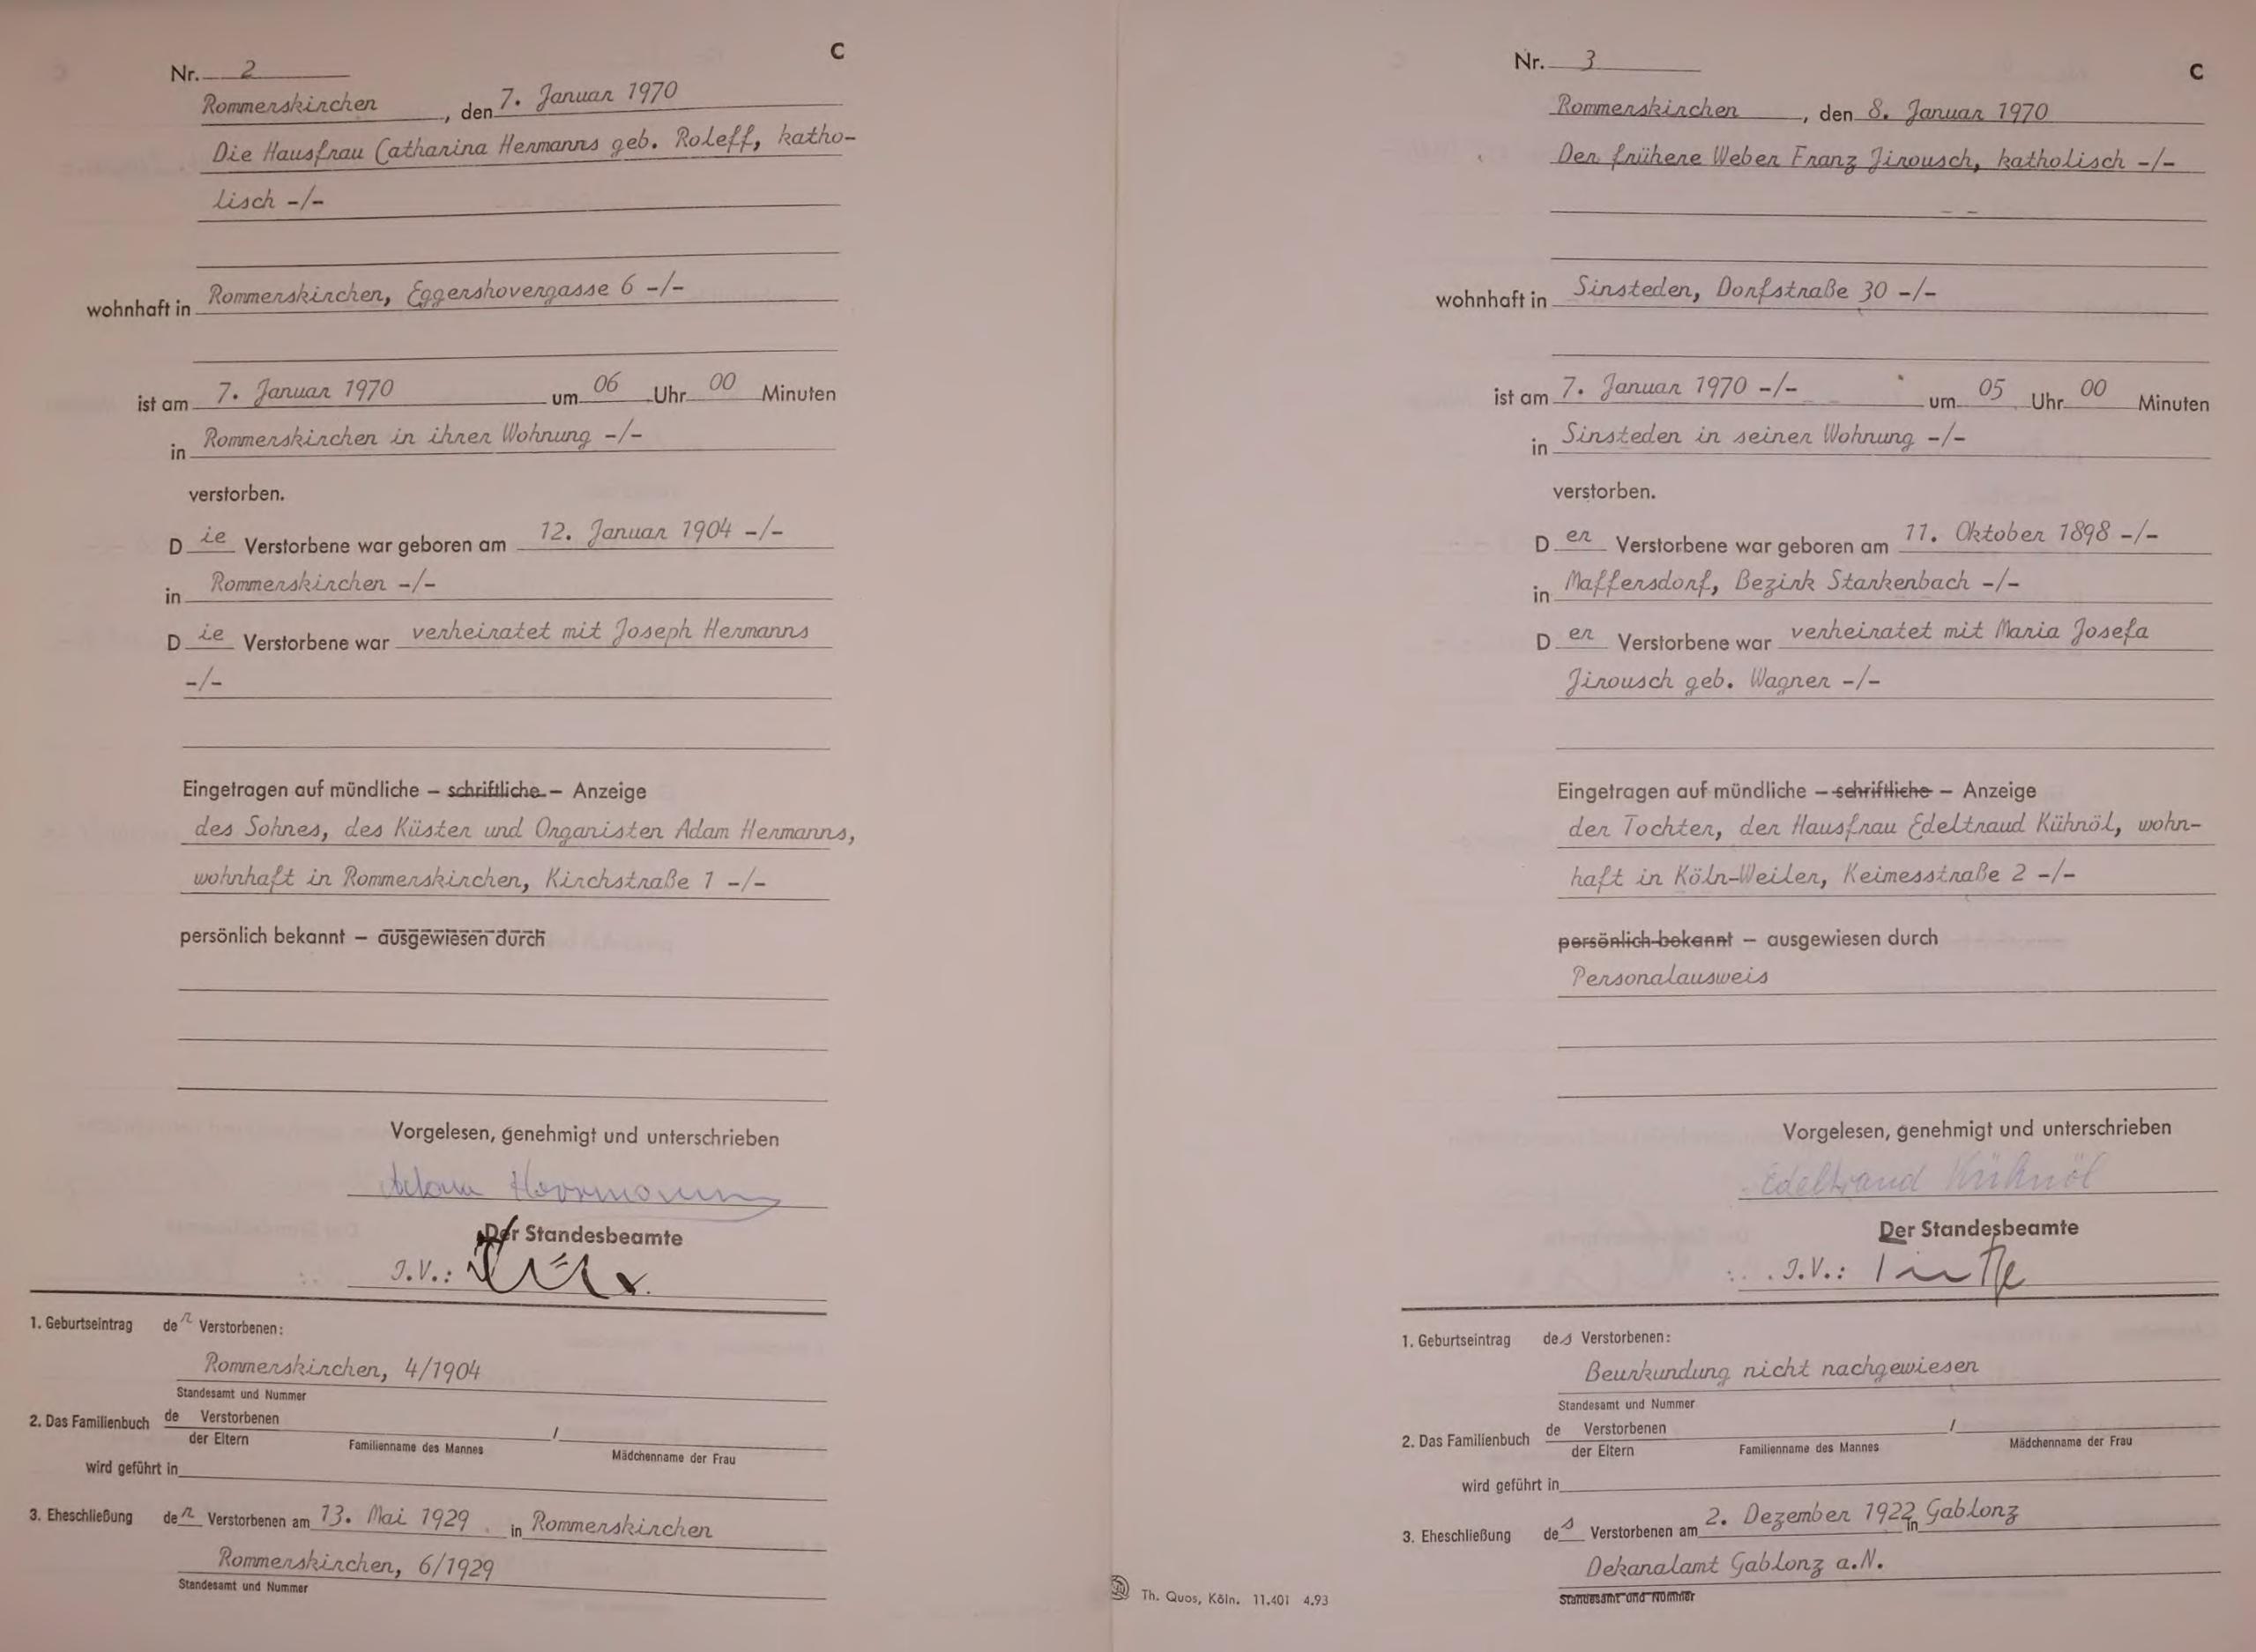 C
Nr. 2
Rommerskirchen, den 7. Januar 1970
Die Hausfrau Catharina Hermanns geb. Roleff, katho-
lisch -/-
wohnhaft in Rommerskirchen, Eggershovergasse 6 -/-
ist am 7. Januar 1970 um 06 Uhr 00 Minuten
in Rommerskirchen in ihrer Wohnung -/-
verstorben.
Die Verstorbene war geboren am 12. Januar 1904 -/-
in Rommerskirchen -/-
Die Verstorbene war verheiratet mit Joseph Hermanns
-/-
Eingetragen auf mündliche – schriftliche – Anzeige
des Sohnes, des Küster und Organisten Adam Hermanns,
wohnhaft in Rommerskirchen, Kirchstraße 1 -/-
persönlich bekannt – ausgewiesen durch
Vorgelesen, genehmigt und unterschrieben
Adam Herrmanns
Der Standesbeamte
J.V.:
1. Geburtseintrag der Verstorbenen:
Rommerskirchen, 4/1904
Standesamt und Nummer
2. Das Familienbuch de Verstorbenen /
der Eltern Familienname des Mannes Mädchenname der Frau
wird geführt in
3. Eheschließung der Verstorbenen am 13. Mai 1929 in Rommerskirchen
Rommerskirchen, 6/1929
Standesamt und Nummer
Nr. 3
C
Rommerskirchen, den 8. Januar 1970
Der frühere Weber Franz Jirousch, katholisch -/-
- -
wohnhaft in Sinsteden, Dorfstraße 30 -/-
ist am 7. Januar 1970 -/- um 05 Uhr 00 Minuten
in Sinsteden in seiner Wohnung -/-
verstorben.
Der Verstorbene war geboren am 11. Oktober 1898 -/-
in Maffersdorf, Bezirk Starkenbach -/-
Der Verstorbene war verheiratet mit Maria Josefa
Jirousch geb. Wagner -/-
Eingetragen auf mündliche – schriftliche – Anzeige
der Tochter, der Hausfrau Edeltraud Kühnöl, wohn-
haft in Köln-Weiler, Keimesstraße 2 -/-
persönlich bekannt – ausgewiesen durch
Personalausweis
Vorgelesen, genehmigt und unterschrieben
Edeltraud Kühnöl
Der Standesbeamte
J.V.:
1. Geburtseintrag des Verstorbenen:
Beurkundung nicht nachgewiesen
Standesamt und Nummer
2. Das Familienbuch de Verstorbenen /
der Eltern Familienname des Mannes Mädchenname der Frau
wird geführt in
3. Eheschließung des Verstorbenen am 2. Dezember 1922 in Gablonz
Dekanalamt Gablonz a.N.
Standesamt und Nummer
Th. Quos, Köln. 11.401 4.93